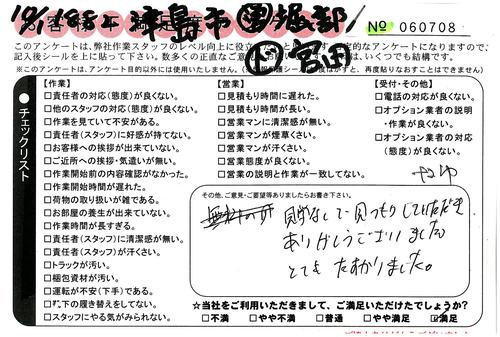 津島市 営 堀部
№ 060708
このアンケートは、弊社作業スタッフのレベル向上に役立
的なアンケートになりますので、
記入後シールを上に貼って下さい。数多くの正直なご意
いくつでも結構です。
※このアンケートは、アンケート目的以外には使用いたしません。
再度貼りなおすことはできません)
チェックリスト
【作業】
□責任者の対応(態度)が良くない。
□他のスタッフの対応(態度)が良くない。
□作業を見ていて不安がある。
□責任者(スタッフ)に好感が持てない。
□お客様への挨拶が出来ていない。
□ご近所への挨拶・気遣いが無い。
□作業開始前の内容確認がなかった。
□作業開始時間が遅れた。
□荷物の取り扱いが雑である。
□お部屋の養生が出来ていない。
□作業時間が長すぎる。
□責任者(スタッフ)に清潔感が無い。
□責任者(スタッフ)が汗くさい。
□トラックが汚い。
□梱包資材が汚い。
□運転が不安(下手)である。
下の履き替えをしてない。
□スタッフにやる気がみられない。
【営業】
□見積もり時間に遅れた。
□見積もり時間が長い。
□営業マンに清潔感が無い。
□営業マンが煙草くさい。
□営業マンが汗くさい。
□営業態度が良くない。
□営業の説明と作業が一致してない。
【受付・その他】
□電話の対応が良くない。
□オプション業者の説明
・作業が良くない。
□オプション業者の対応
(態度)が良くない。
その他、ご意見・ご要望等ありましたらお書き下さい。
見学なしで見つもりしていただき
ありがとうございました
とても たすかりました。
☆当社をご利用いただきまして、ご満足いただけたでしょうか?
□不満 □やや不満 □普通 □やや満足 ☑満足